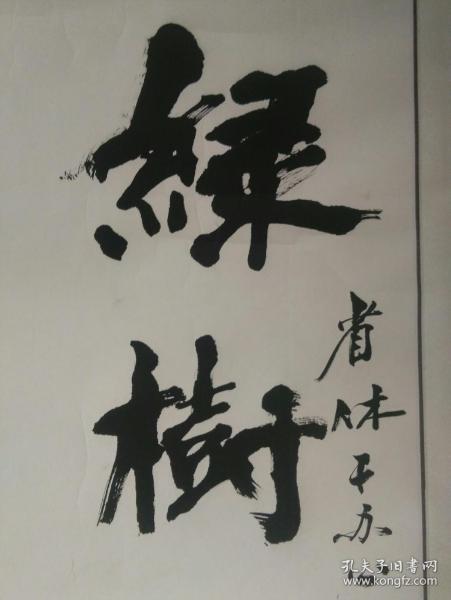 綠樹
省休干办
孔夫子旧书网
www.kongfz.com